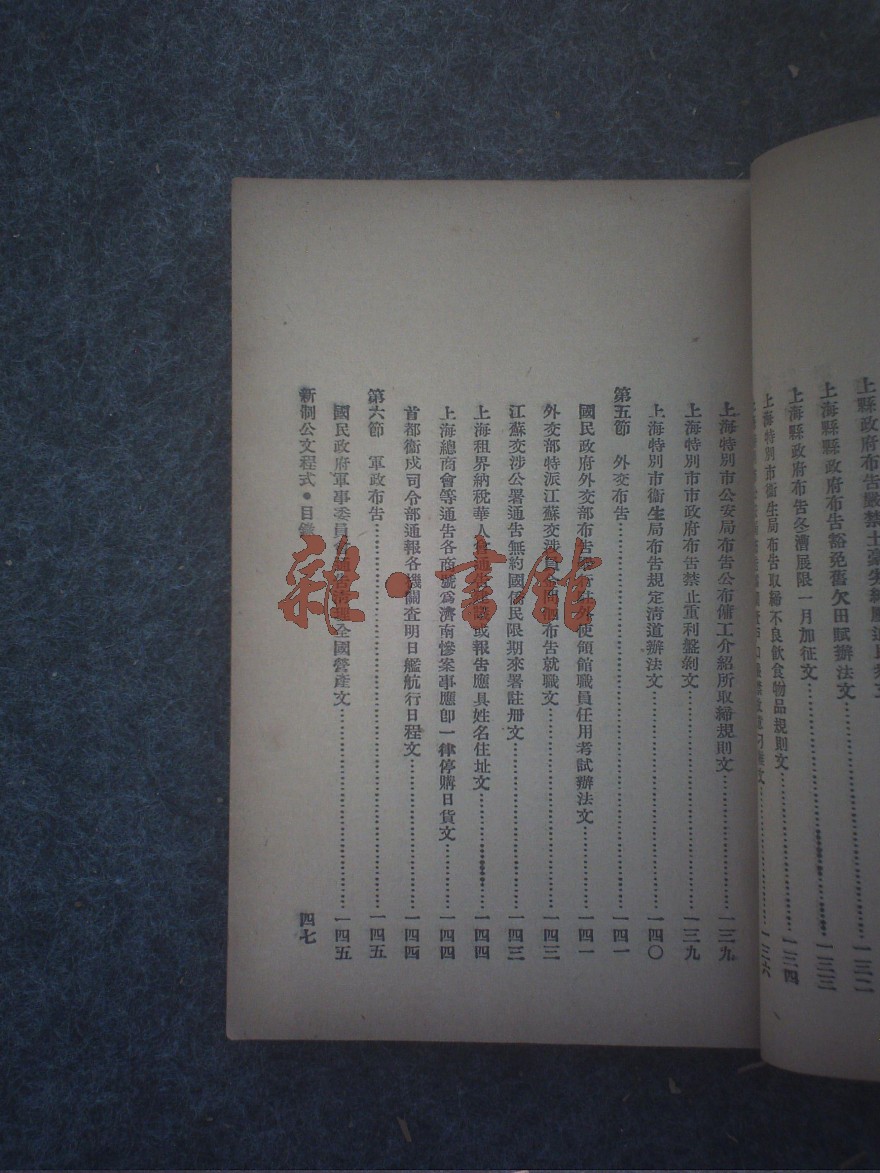 上海縣政府布告豁免舊欠田賦辦法文……一三三
上海縣政府布告冬漕展限一月加征文……一三四
上海特別市衞生局布告取締不良飲食物品規則文
上海特別市公安局布告公布傭工介紹所取締規則文……一三九
上海特別市市政府布告禁止重利盤剝文……一三九
上海特別市衞生局布告規定清道辦法文……一四〇
第五節 外交布告……一四一
國民政府外交部布告 駐外使領館職員任用考試辦法文……一四一
外交部特派江蘇交涉員 布告就職文……一四三
江蘇交涉公署通告無約國僑民限期來署註册文……一四三
上海租界納稅華人會通告 或報告應具姓名住址文……一四四
上海總商會等通告各商號爲濟南慘案事應卽一律停購日貨文……一四四
首都衞戍司令部通報各機關查明日艦航行日程文……一四四
第六節 軍政布告……一四五
國民政府軍事委員會 清理全國營產文……一四五
新制公文程式•目錄 四七
雜·書館